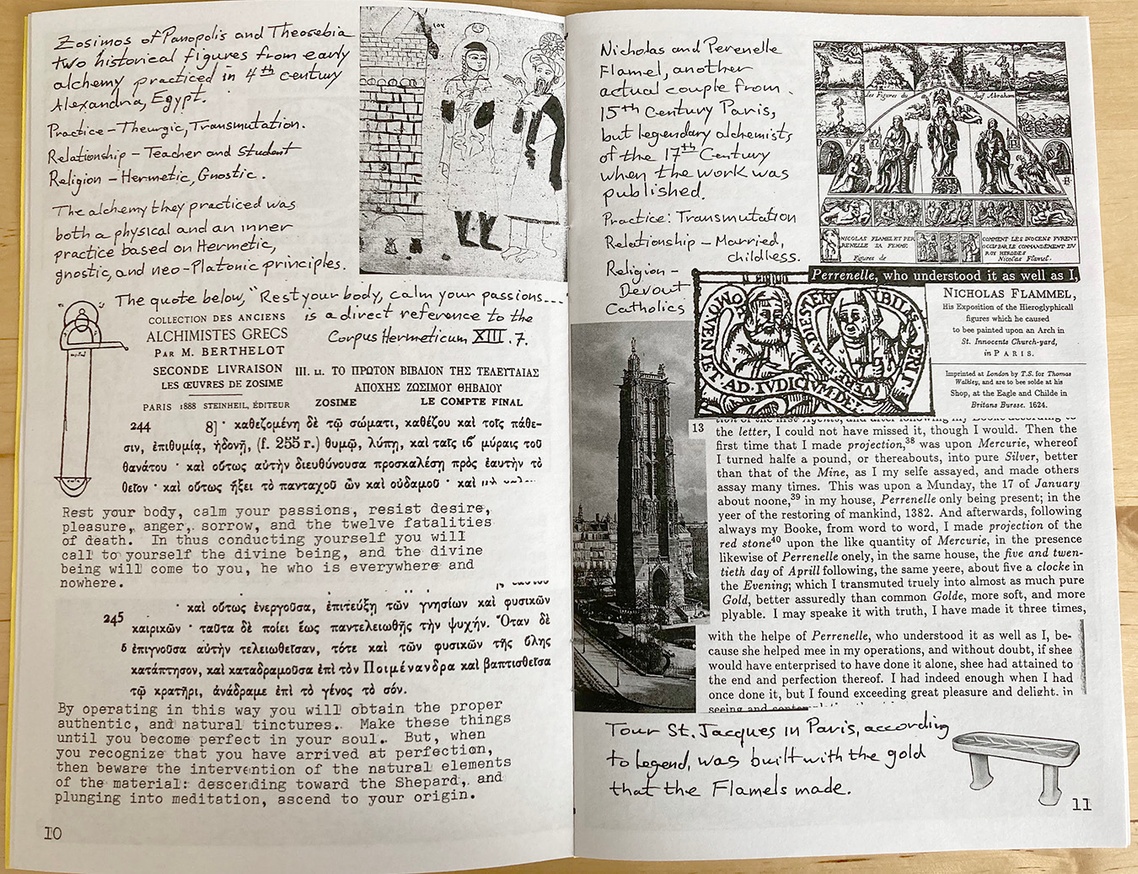 Zosimos of Panopolis and Theosebia
two historical figures from early
alchemy practiced in 4th century
Alexandria, Egypt.
Practice – Theurgic, Transmutation.
Relationship – Teacher and Student
Religion – Hermetic, Gnostic.
The alchemy they practiced was
both a physical and an inner
practice based on Hermetic,
gnostic, and neo-Platonic principles.
The quote below, "Rest your body, calm your passions---
is a direct reference to the
Corpus Hermeticum XIII.7.
COLLECTION DES ANCIENS
ALCHIMISTES GRECS
PAR M. BERTHELOT
SECONDE LIVRAISON
LES ŒUVRES DE ZOSIME
PARIS 1888 STEINHEIL, ÉDITEUR
ΤΟ ΠΡΩΤΟΝ ΒΙΒΛΙΟΝ ΤΗΣ ΤΕΛΕΥΤΑΙΑΣ
ΑΠΟΧΗΣ ΖΩΣΙΜΟΥ ΘΗΒΑΙΟΥ
ZOSIME LE COMPTE FINAL
244 8] · καθεζομένη δὲ τῷ σώματι, καθέζου καὶ τοῖς πάθε-
σιν, ἐπιθυμίᾳ, ἡδονῇ, (f. 255 r.) θυμῷ, λύπῃ, καὶ ταῖς ιβ μύραις τοῦ
θανάτου · καὶ οὕτως αὐτὴν διευθύνουσα προσκαλέσῃ πρὸς ἑαυτὴν τὸ
θεῖον · καὶ οὕτως ἥξει τὸ πανταχοῦ ὢν καὶ οὐδαμοῦ · καὶ
Rest your body, calm your passions, resist desire,
pleasure, anger, sorrow, and the twelve fatalities
of death. In thus conducting yourself you will
call to yourself the divine being, and the divine
being will come to you, he who is everywhere and
nowhere.
245 · καὶ οὕτως ἐνεργοῦσα, ἐπιτεύξῃ τῶν γνησίων καὶ φυσικῶν
καιρικῶν · ταῦτα δὲ ποίει ἕως παντελειωθῇς τὴν ψυχήν. Ὅταν δὲ
5 ἐπιγνοῦσα αὐτὴν τελειωθεῖσαν, τότε καὶ τῶν φυσικῶν τῆς ὕλης
κατάπτησον, καὶ καταδραμοῦσα ἐπὶ τὸν Ποιμένανδρα καὶ βαπτισθεῖσα
τῷ κρατῆρι, ἀνάδραμε ἐπὶ τὸ γένος τὸ σόν.
By operating in this way you will obtain the proper
authentic, and natural tinctures. Make these things
until you become perfect in your soul. But, when
you recognize that you have arrived at perfection,
then beware the intervention of the natural elements
of the material: descending toward the Shepard, and
plunging into meditation, ascend to your origin.
10
Nicholas and Perenelle
Flamel, another
actual couple from
15th Century Paris,
but legendary alchemists
of the 17th Century
when the work was
published.
Practice: Transmutation
Relationship – Married,
childless.
Religion –
Devout
Catholics
NICOLAS FLAMEL ET PER
RENELLE SA FEMME
Figures de
COMMENT LES INOCENS FVRENT
OCCIS PAR LE COMMANDEMENT DU
ROY HERODES
Nicolas Flamel.
Perrenelle, who understood it as well as I,
NICHOLAS FLAMMEL,
His Exposition of the Hieroglyphicall
figures which he caused
to bee painted upon an Arch in
St. Innocents Church-yard,
in PARIS.
Imprinted at London by T.S. for Thomas
Walkley, and are to bee solde at his
Shop, at the Eagle and Childe in
Britans Bursse. 1624.
13
the letter, I could not have missed it, though I would. Then the
first time that I made projection,38 was upon Mercurie, whereof
I turned halfe a pound, or thereabouts, into pure Silver, better
than that of the Mine, as I my selfe assayed, and made others
assay many times. This was upon a Munday, the 17 of January
about noone,39 in my house, Perrenelle only being present; in the
yeer of the restoring of mankind, 1382. And afterwards, following
always my Booke, from word to word, I made projection of the
red stone40 upon the like quantity of Mercurie, in the presence
likewise of Perrenelle onely, in the same house, the five and twen-
tieth day of Aprill following, the same yeere, about five a clocke in
the Evening; which I transmuted truely into almost as much pure
Gold, better assuredly than common Golde, more soft, and more
plyable. I may speake it with truth, I have made it three times,
with the helpe of Perrenelle, who understood it as well as I, be-
cause she helped mee in my operations, and without doubt, if shee
would have enterprised to have done it alone, shee had attained to
the end and perfection thereof. I had indeed enough when I had
once done it, but I found exceeding great pleasure and delight. in
Tour St. Jacques in Paris, according
to legend, was built with the gold
that the Flamels made.
11